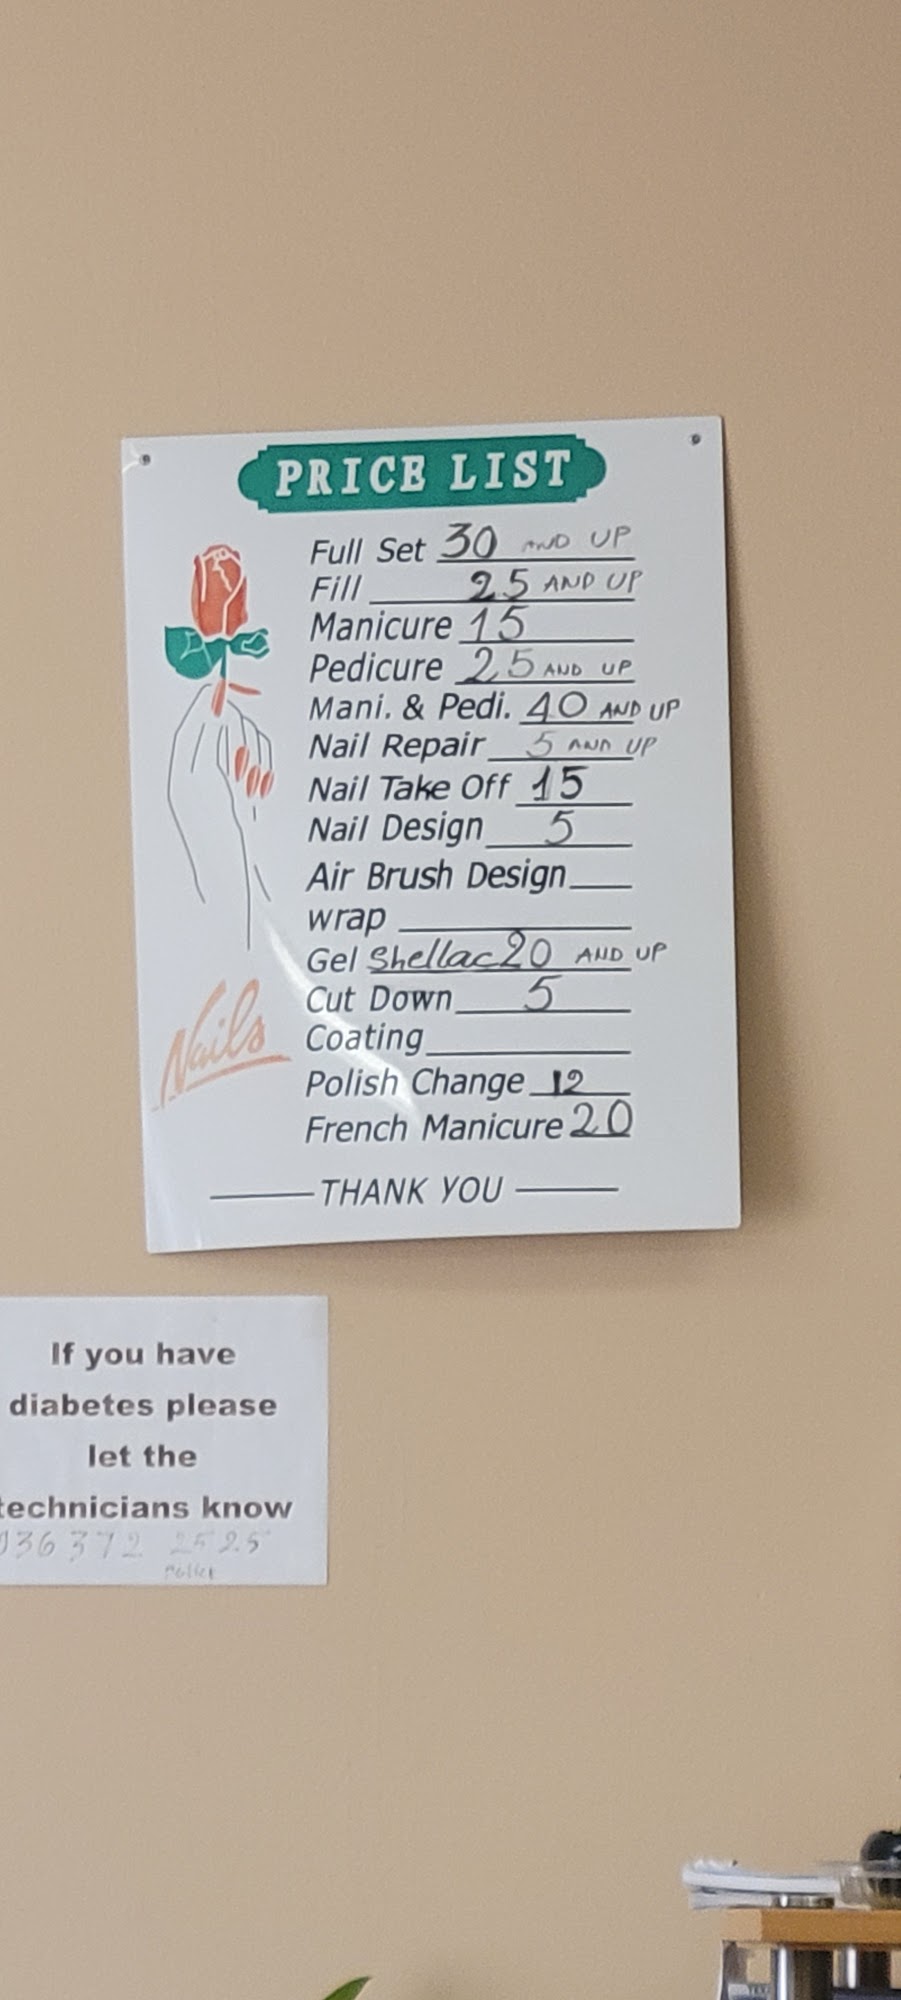 PRICE LIST
Full Set 30 AND UP
Fill 25 AND UP
Manicure 15
Pedicure 25 AND UP
Mani. & Pedi. 40 AND UP
Nail Repair 5 AND UP
Nail Take Off 15
Nail Design 5
Air Brush Design
wrap
Gel Shellac 20 AND UP
Cut Down 5
Coating
Polish Change 12
French Manicure 20
Nails
THANK YOU
If you have
diabetes please
let the
technicians know
36 372 2525